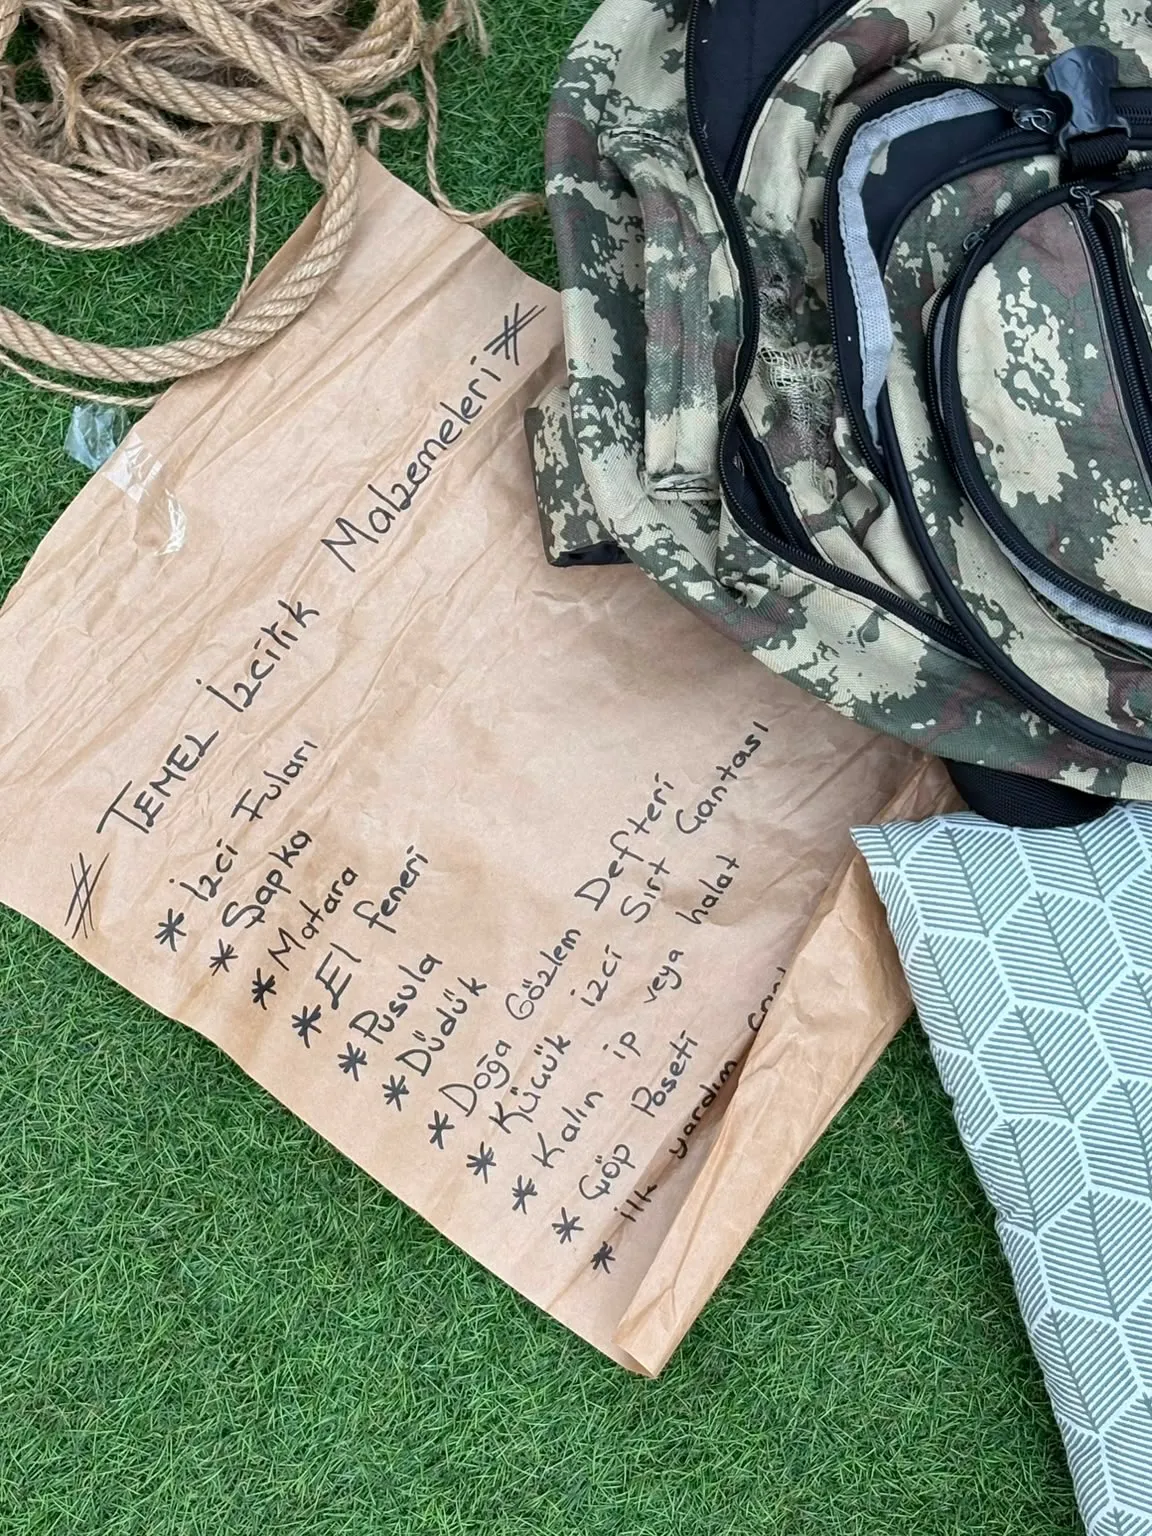 # TEMEL İzcilik Malzemeleri #
* İzci Fuları
* Şapka
* Matara
* El feneri
* Pusula
* Düdük
* Doğa Gözlem Defteri
* Küçük izci Sırt Çantası
* Kalın ip veya halat
* Çöp Poşeti
* ilk yardım